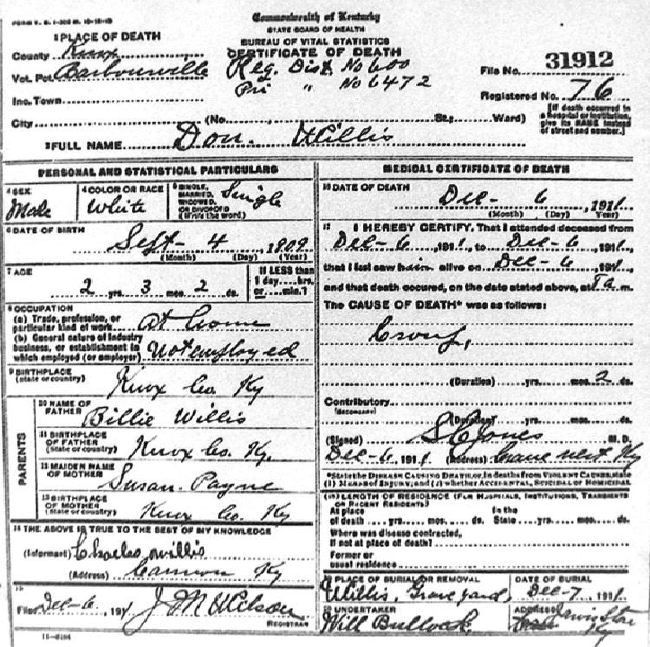 Commonwealth of Kentucky
STATE BOARD OF HEALTH
BUREAU OF VITAL STATISTICS
CERTIFICATE OF DEATH
1 PLACE OF DEATH
County Knox
Vot. Pct. Barbourville
Inc. Town
City (No. St.; Ward)
Reg. Dist. No 600
Pri " No 6472
File No. 31912
Registered No. 76
[If death occurred in a hospital or institution, give its NAME instead of street and number.]
2 FULL NAME Don. Willis
PERSONAL AND STATISTICAL PARTICULARS
3 SEX Male
4 COLOR OR RACE White
5 SINGLE, MARRIED, WIDOWED OR DIVORCED (Write the word) Single
6 DATE OF BIRTH Sept- 4, 1809
(Month) (Day) (Year)
7 AGE 2 yrs. 3 mos. 2 ds.
If LESS than 1 day, hrs. or min.?
8 OCCUPATION
(a) Trade, profession, or particular kind of work At home
(b) General nature of industry business, or establishment in which employed (or employer) Not employed
9 BIRTHPLACE (State or country) Knox Co. Ky
PARENTS
10 NAME OF FATHER Billie Willis
11 BIRTHPLACE OF FATHER (State or country) Knox Co. Ky.
12 MAIDEN NAME OF MOTHER Susan. Payne
13 BIRTHPLACE OF MOTHER (State or country) Knox Co. Ky
14 THE ABOVE IS TRUE TO THE BEST OF MY KNOWLEDGE
(Informant) Charles Willis
(Address) Cannon Ky
15
Filed Dec-6, 191 J M Wilson
REGISTRAR
MEDICAL CERTIFICATE OF DEATH
16 DATE OF DEATH Dec- 6, 1911
(Month) (Day) (Year)
17 I HEREBY CERTIFY, That I attended deceased from
Dec-6, 1911, to Dec-6, 1911,
that I last saw him alive on Dec-6, 1911,
and that death occured, on the date stated above, at m.
The CAUSE OF DEATH* was as follows:
Croup,
(Duration) yrs. mos. 2 ds.
Contributory
(Secondary)
(Duration) yrs. mos. ds.
(Signed) Jones M. D.
Dec-6, 1911 (Address) Ky
*State the DISEASE CAUSING DEATH, or, in deaths from VIOLENT CAUSES, state (1) MEANS OF INJURY; and (2) whether ACCIDENTAL, SUICIDAL OR HOMICIDAL
18 LENGTH OF RESIDENCE (FOR HOSPITALS, INSTITUTIONS, TRANSIENTS OR RECENT RESIDENTS)
At place of death yrs. mos. ds. In the State yrs. mos. ds.
Where was disease contracted, if not at place of death?
Former or usual residence
19 PLACE OF BURIAL OR REMOVAL Willis, Graveyard,
DATE OF BURIAL Dec-7, 1911
20 UNDERTAKER Will Bullock,
ADDRESS Ky